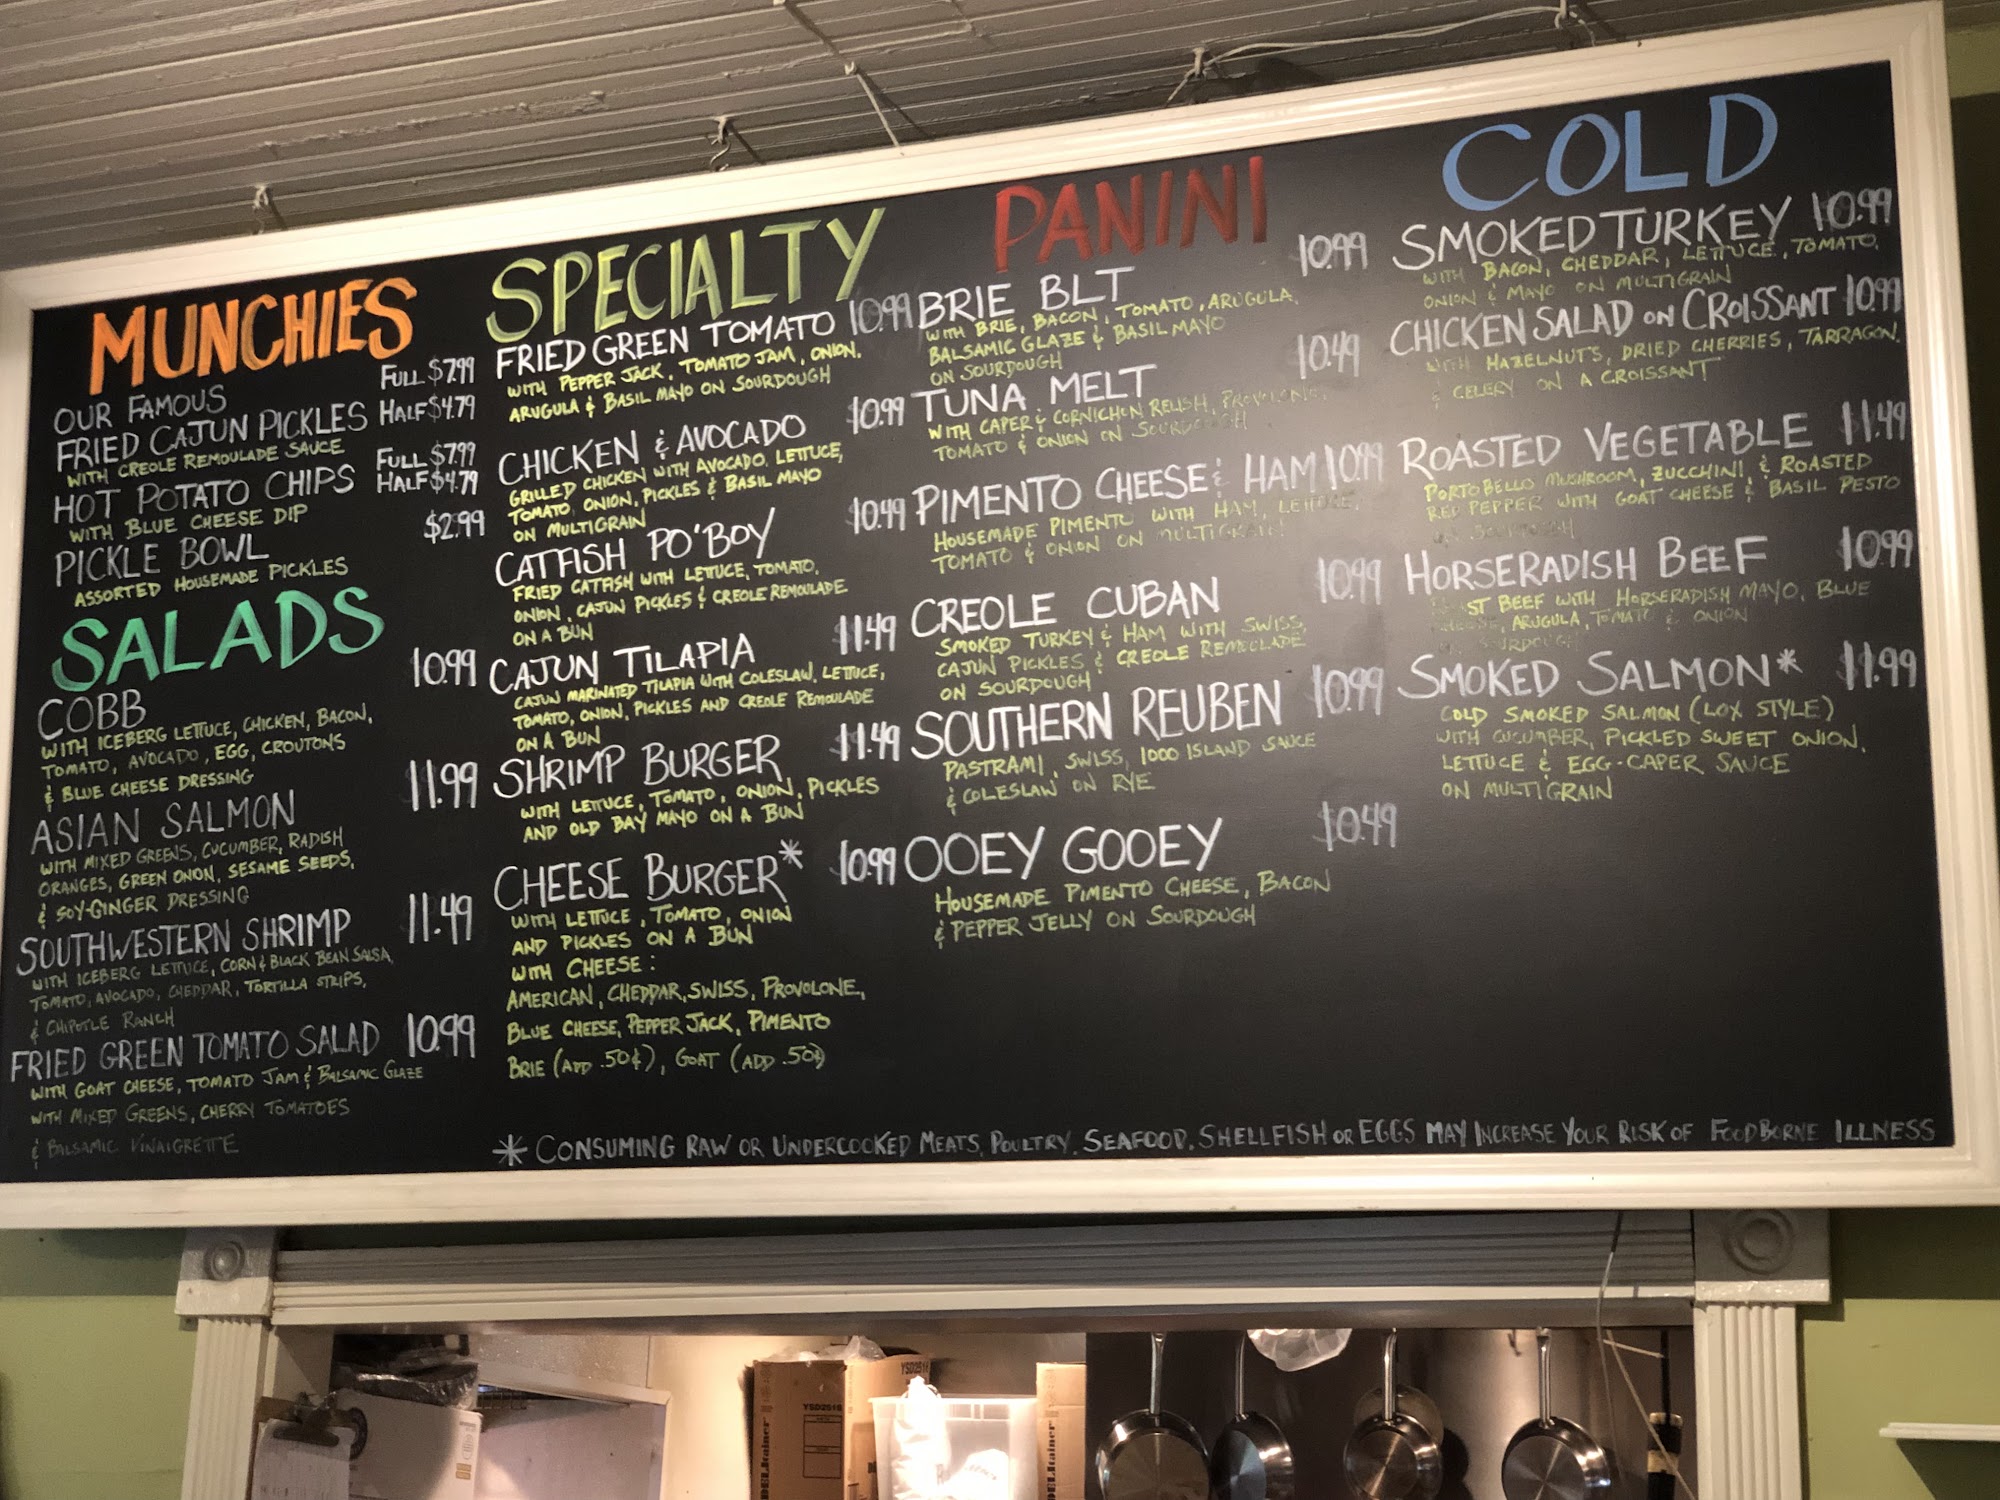 MUNCHIES
OUR FAMOUS
FRIED CAJUN PICKLES
FULL $7.99
HALF $4.79
WITH CREOLE REMOULADE SAUCE
HOT POTATO CHIPS
FULL $7.99
HALF $4.79
WITH BLUE CHEESE DIP
PICKLE BOWL $2.99
ASSORTED HOUSEMADE PICKLES
SALADS
COBB 10.99
WITH ICEBERG LETTUCE, CHICKEN, BACON,
TOMATO, AVOCADO, EGG, CROUTONS
& BLUE CHEESE DRESSING
ASIAN SALMON 11.99
WITH MIXED GREENS, CUCUMBER, RADISH
ORANGES, GREEN ONON, SESAME SEEDS,
& SOY-GINGER DRESSING
SOUTHWESTERN SHRIMP 11.49
WITH ICEBERG LETTUCE, CORN & BLACK BEAN SALSA,
TOMATO, AVOCADO, CHEDDAR, TORTILLA STRIPS,
& CHIPOTLE RANCH
FRIED GREEN TOMATO SALAD 10.99
WITH GOAT CHEESE, TOMATO JAM & BALSAMIC GLAZE
WITH MIXED GREENS, CHERRY TOMATOES
& BALSAMIC VINAIGRETTE
SPECIALTY
FRIED GREEN TOMATO 10.99
WITH PEPPER JACK, TOMATO JAM, ONION,
ARUGULA & BASIL MAYO ON SOURDOUGH
CHICKEN & AVOCADO $10.99
GRILLED CHICKEN WITH AVOCADO, LETTUCE,
TOMATO, ONION, PICKLES & BASIL MAYO
ON MULTIGRAIN
CATFISH PO'BOY $10.49
FRIED CATFISH WITH LETTUCE, TOMATO,
ONION, CAJUN PICKLES & CREOLE REMOULADE
ON A BUN
CAJUN TILAPIA $11.49
CAJUN MARINATED TILAPIA WITH COLESLAW, LETTUCE,
TOMATO, ONION, PICKLES AND CREOLE REMOULADE
ON A BUN
SHRIMP BURGER $11.49
WITH LETTUCE, TOMATO, ONION, PICKLES
AND OLD BAY MAYO ON A BUN
CHEESE BURGER* 10.99
WITH LETTUCE, TOMATO, ONION
AND PICKLES ON A BUN
WITH CHEESE:
AMERICAN, CHEDDAR, SWISS, PROVOLONE,
BLUE CHEESE, PEPPER JACK, PIMENTO
BRIE (ADD .50¢), GOAT (ADD .50¢)
PANINI
BRIE BLT 10.99
WITH BRIE, BACON, TOMATO, ARUGULA,
BALSAMIC GLAZE & BASIL MAYO
ON SOURDOUGH
TUNA MELT 10.49
WITH CAPER & CORNICHON RELISH, PROVOLONE,
TOMATO & ONION ON SOURDOUGH
PIMENTO CHEESE & HAM 10.99
HOUSEMADE PIMENTO WITH HAM, LETTUCE,
TOMATO & ONION ON MULTIGRAIN
CREOLE CUBAN 10.99
SMOKED TURKEY & HAM WITH SWISS,
CAJUN PICKLES & CREOLE REMOULADE
ON SOURDOUGH
SOUTHERN REUBEN 10.99
PASTRAMI, SWISS, 1000 ISLAND SAUCE
& COLESLAW ON RYE
OOEY GOOEY $10.49
HOUSEMADE PIMENTO CHEESE, BACON
& PEPPER JELLY ON SOURDOUGH
COLD
SMOKED TURKEY 10.99
WITH BACON, CHEDDAR, LETTUCE, TOMATO,
ONION & MAYO ON MULTIGRAIN
CHICKEN SALAD ON CROISSANT 10.99
WITH HAZELNUTS, DRIED CHERRIES, TARRAGON,
& CELERY ON A CROISSANT
ROASTED VEGETABLE $11.49
PORTOBELLO MUSHROOM, ZUCCHINI, & ROASTED
RED PEPPER WITH GOAT CHEESE & BASIL PESTO
ON SOURDOUGH
HORSERADISH BEEF 10.99
ROAST BEEF WITH HORSERADISH MAYO, BLUE
CHEESE, ARUGULA, TOMATO & ONION
ON SOURDOUGH
SMOKED SALMON* $11.99
COLD SMOKED SALMON (LOX STYLE)
WITH CUCUMBER, PICKLED SWEET ONION,
LETTUCE & EGG-CAPER SAUCE
ON MULTIGRAIN
* CONSUMING RAW OR UNDERCOOKED MEATS, POULTRY, SEAFOOD, SHELLFISH OR EGGS MAY INCREASE YOUR RISK OF FOODBORNE ILLNESS
YSD2516
YSD2516